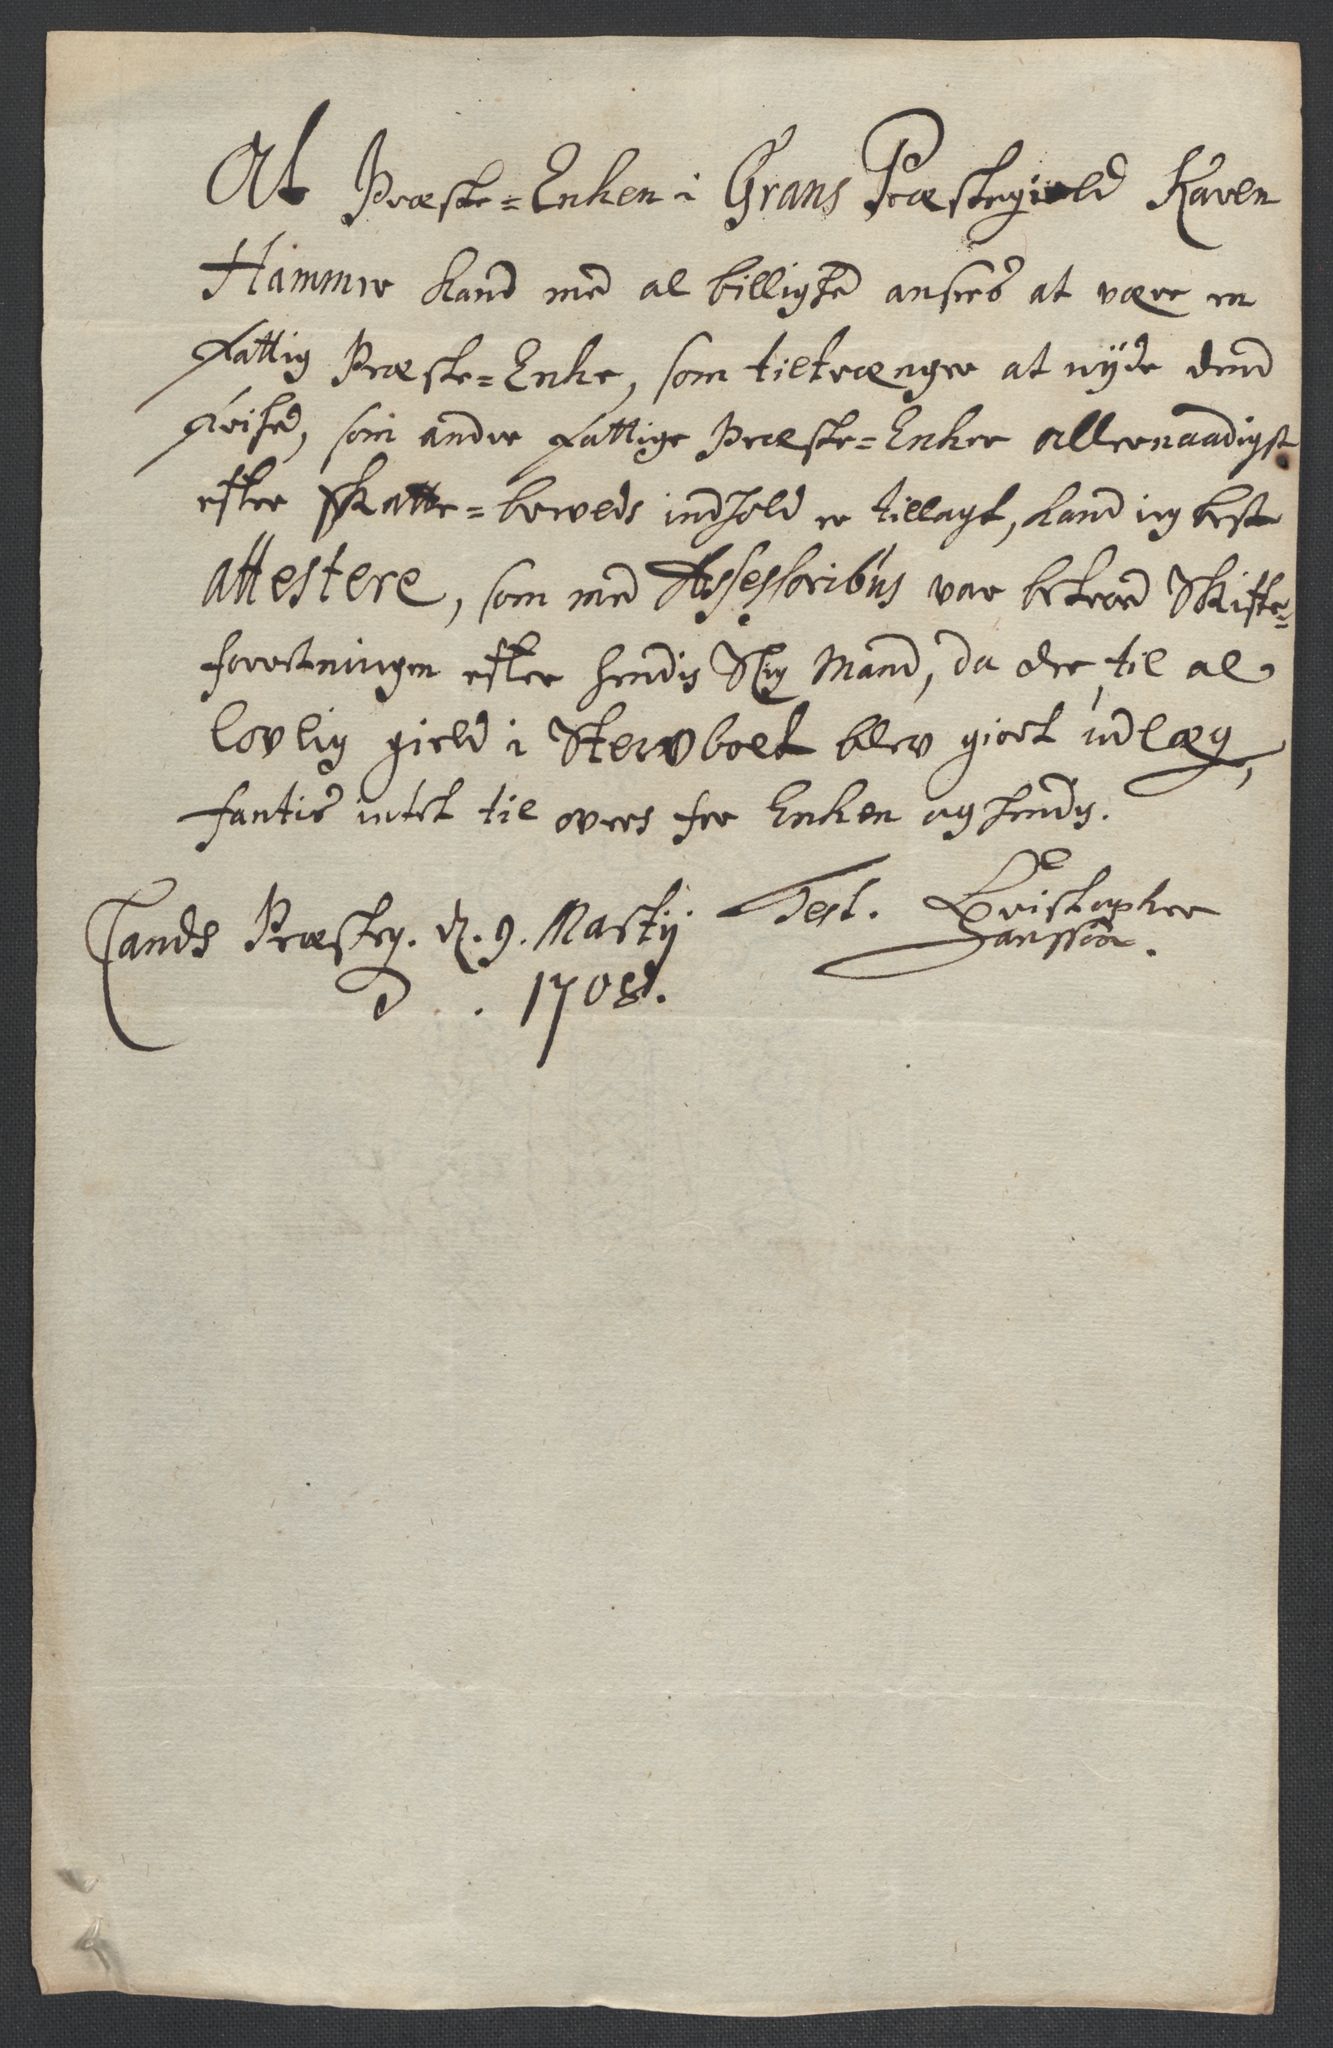 At Præste=Enken i Grans Præstegield Karen
Hammer kand med al billighed ansees at være en
fattig Præste=Enke, som tiltrænger at nyde dend
frihed, som andre fattige Præste=Enker allernaadigst
efter Skatte=brevets indhold er tillagt, kand ieg best
attestere, som med Assessoribus var betroed Skifte=
forretningen efter hendis Sl: Mand, da der til al
lovlig gield i Stervboet blev giort udlæg,
fantis intet til overs for Enken og hendis.
Lands Præsteg. d. 9. Martij Test. Christopher
Hanssøn.
1708.